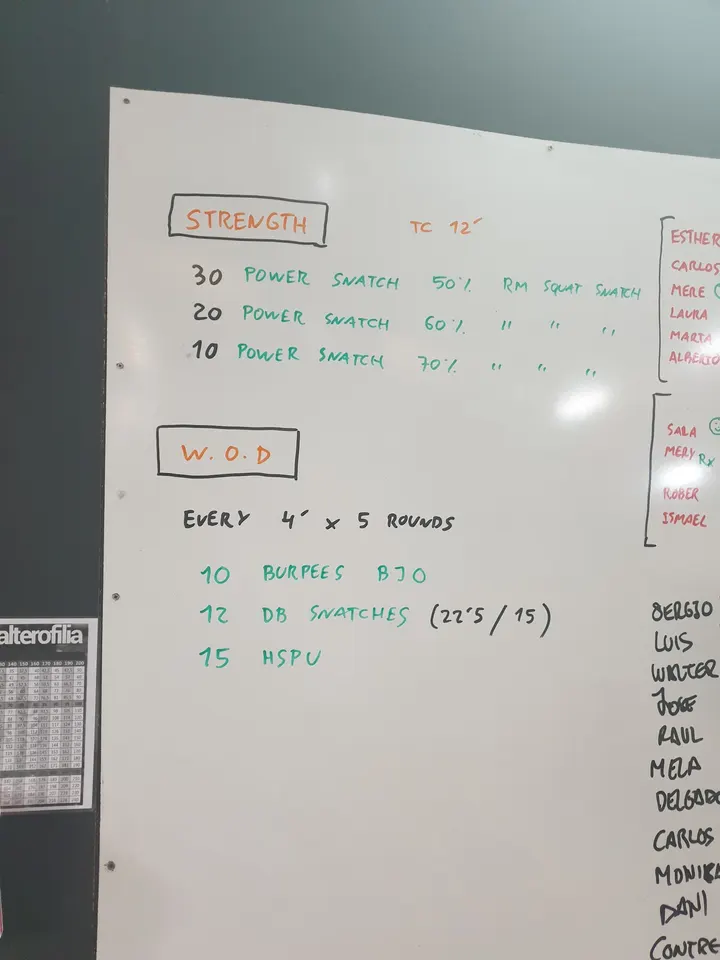 STRENGTH TC 12´
30 POWER SNATCH 50% RM SQUAT SNATCH
20 POWER SNATCH 60% " " "
10 POWER SNATCH 70% " " "
W.O.D
EVERY 4´ x 5 ROUNDS
10 BURPEES BJO
12 DB SNATCHES (22´5/15)
15 HSPU
ESTHER
CARLOS
MERE
LAURA
MARTA
ALBERTO
SARA
MERY Rx
ROBER
ISMAEL
SERGIO
LUIS
WALTER
JOSE
RAUL
MELA
DELGADO
CARLOS
MONIKA
DANI
CONTRE
alterofilia